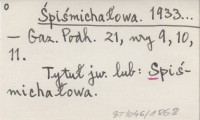 o
Śpiśmichałowa. 1933...
— Gaz. Podh. 21, wy 9, 10,
11.
Tytuł jw. lub: Spiś-
michałowa.